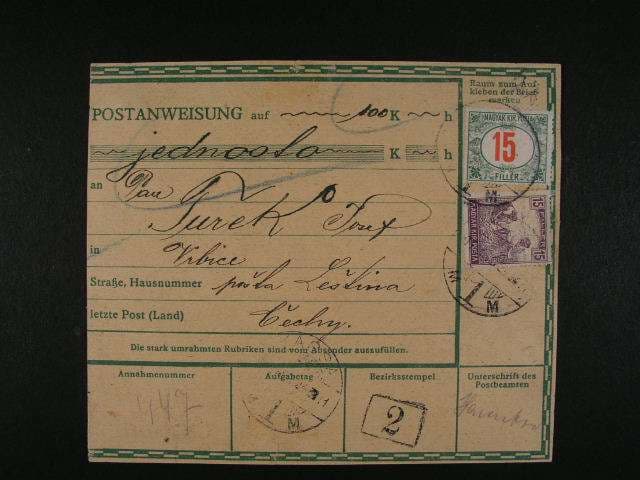 Raum zum Auf-
kleben der Brief-
marken
POSTANWEISUNG auf 100 K h
jednosto K h
MAGYAR KIR. POSTA
15
FILLÉR
an Pan
Turek Josef
in Vrbice
Straße, Hausnummer pošta Leština
letzte Post (Land) Čechy.
15 15
MAGYAR KIR. POSTA
M
M
Die stark umrahmten Rubriken sind vom Absender auszufüllen.
Annahmenummer Aufgabetag Bezirksstempel Unterschrift des
Postbeamten
447
M
2